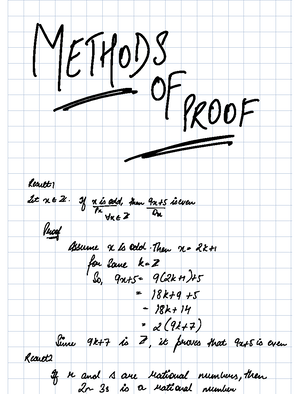 METHODS
OF
PROOF
Result 1
Let x ∈ Z. If x is odd, then 9x+5 is even
Px Qx
∀x ∈ Z
Proof
Assume x is odd. Then x = 2k+1
for some k = Z
So, 9x+5 = 9(2k+1)+5
= 18k+9+5
= 18k+14
= 2(9k+7)
Since 9k+7 is Z, it proves that 9x+5 is even
Result 2
If r and s are rational numbers, then
2r 3s is a rational number